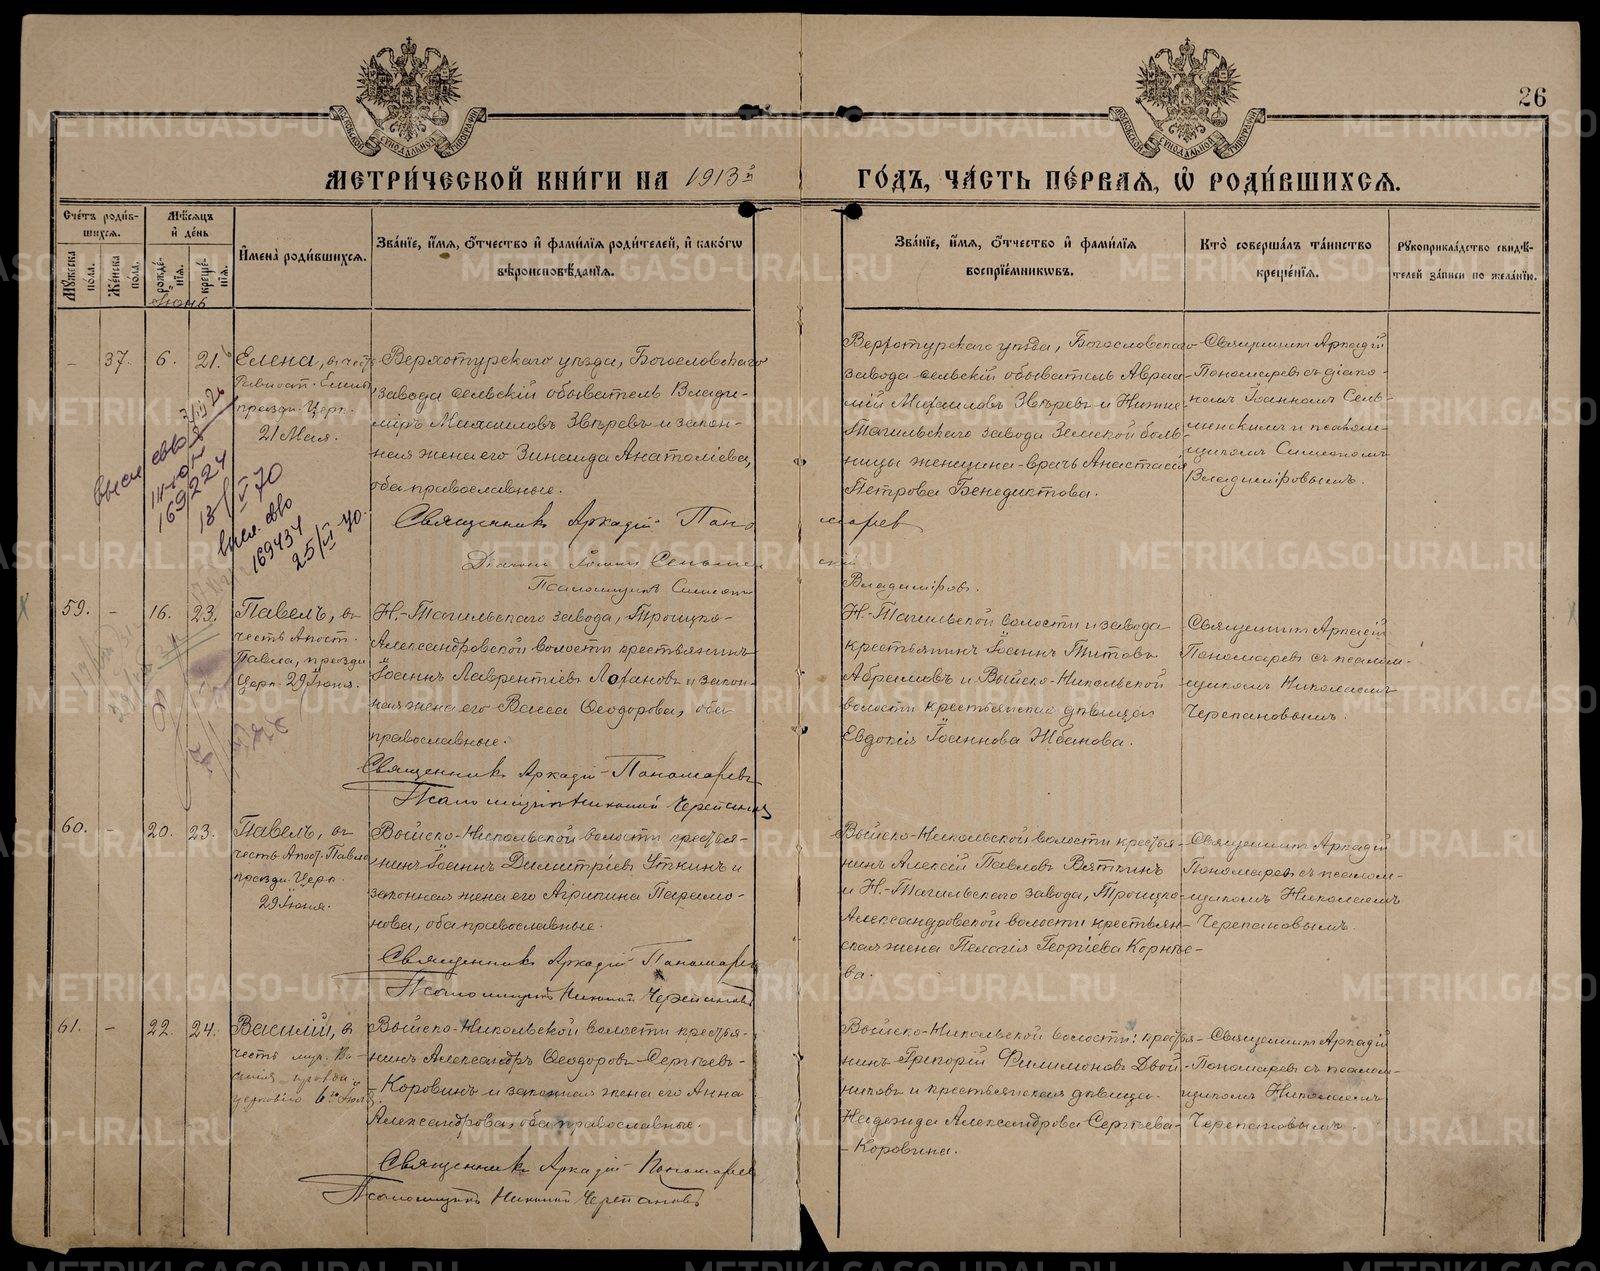 26
МОСКОВСКОЙ СѴНОДАЛЬНОЙ ТИПОГРАФІИ
МОСКОВСКОЙ СѴНОДАЛЬНОЙ ТИПОГРАФІИ
МЕТРИ́ЧЕСКОЙ КНИ́ГИ НА 1913 й
ГО́ДЪ, ЧА́СТЬ ПЕ́РВАѦ, Ѡ҆ РОДИ́ВШИХСѦ.
Сче́тъ роди́в-
шихсѧ.
Мꙋ́жеска по́ла.
Же́нска по́ла.
Мѣ́сѧцъ и҆ де́нь
рожде́-нїѧ.
креще́-нїѧ.
Іюнь
И҆мена̀ роди́вшихсѧ.
Зва́нїе, и҆́мѧ, ѻ҆́тчество и҆ фами́лїѧ роди́телей, и҆ како́гѡ
вѣроисповѣ́данїѧ.
Зва́нїе, и҆́мѧ, ѻ҆́тчество и҆ фами́лїѧ
воспрїе́мникѡвъ.
Кто̀ соверша́лъ та́инство
креще́нїѧ.
Рꙋкоприкла́дство свидѣ́-
телей за́писи по жела́нїю.
– 37. 6. 21.
Елена, въ честь
Равноап. Елены,
праздн. Церк.
21 Мая.
Верхотурскаго уѣзда, Богословскаго
завода сельскій обыватель Влади-
міръ Михаиловъ Звѣревъ и закон-
ная жена его Зинаида Анатоліева,
оба православные.
Священникъ Аркадій Поно
марев
Діаконъ Іоаннъ Сельмен
скій
Псаломщикъ Симеонъ
Владиміровъ.
Верхотурскаго уѣзда, Богословскаго
завода сельскій обыватель Авраа-
мій Михаиловъ Звѣревъ и Нижне-
Тагильскаго завода Земской боль-
ницы женщина-врачъ Анастасія
Петрова Бенедиктова.
Священникъ Аркадій
Пономаревъ съ діако-
номъ Іоанномъ Сель-
менскимъ и псалом-
щикомъ Симеономъ
Владиміровымъ.
169224
V 70
169434
25/VI 70.
59. – 16. 23.
Павелъ, въ
честь Апост.
Павла, праздн.
Церк. 29 Іюня.
Н.-Тагильскаго завода, Троицко-
Александровской волости крестьянинъ
Іоаннъ Лаврентіевъ Лохановъ и закон-
ная жена его Васса Ѳеодорова, оба
православные.
Священникъ Аркадій Пономаревъ
Псаломщикъ Николай Черепановъ
Н.-Тагильской волости и завода
крестьянинъ Іоаннъ Титовъ
Абрамовъ и Выйско-Никольской
волости крестьянская дѣвица
Евдокія Іоаннова Жбанова.
Священникъ Аркадій
Пономаревъ съ псалом-
щикомъ Николаемъ
Черепановымъ.
60. – 20. 23.
Павелъ, въ
честь Апост. Павла
праздн. Церк.
29 Іюня.
Выйско-Никольской волости крестья-
нинъ Іоаннъ Димитріевъ Уткинъ и
законная жена его Агрипина Парамо-
нова, оба православные.
Священникъ Аркадій Пономаревъ
Псаломщикъ Николай Черепановъ
Выйско-Никольской волости крестья-
нинъ Алексѣй Павловъ Вяткинъ
и Н.-Тагильскаго завода, Троицко-
Александровской волости крестьян-
ская жена Пелагія Георгіева Корнѣе-
ва.
Священникъ Аркадій
Пономаревъ съ псалом-
щикомъ Николаемъ
Черепановымъ.
61. – 22. 24.
Василій, въ
честь муч. Ва-
силія праздн.
церковію 6го Іюл.
Выйско-Никольской волости крестья-
нинъ Александръ Ѳеодоровъ Сергѣевъ-
Коровинъ и законная жена его Анна
Александрова, оба православные.
Священникъ Аркадій Пономаревъ
Псаломщикъ Николай Черепановъ
Выйско-Никольской волости: крестья-
нинъ Григорій Филимоновъ Двой-
никовъ и крестьянская дѣвица
Надежда Александрова Сергѣева-
- Коровина.
Священникъ Аркадій
Пономаревъ съ псалом-
щикомъ Николаемъ
Черепановымъ.
METRIKI.GASO-URAL.RU